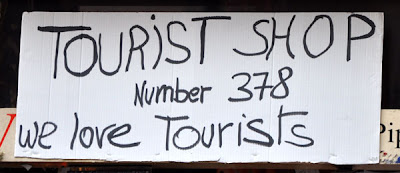 TOURIST SHOP
Number 378
we love Tourists
Pip